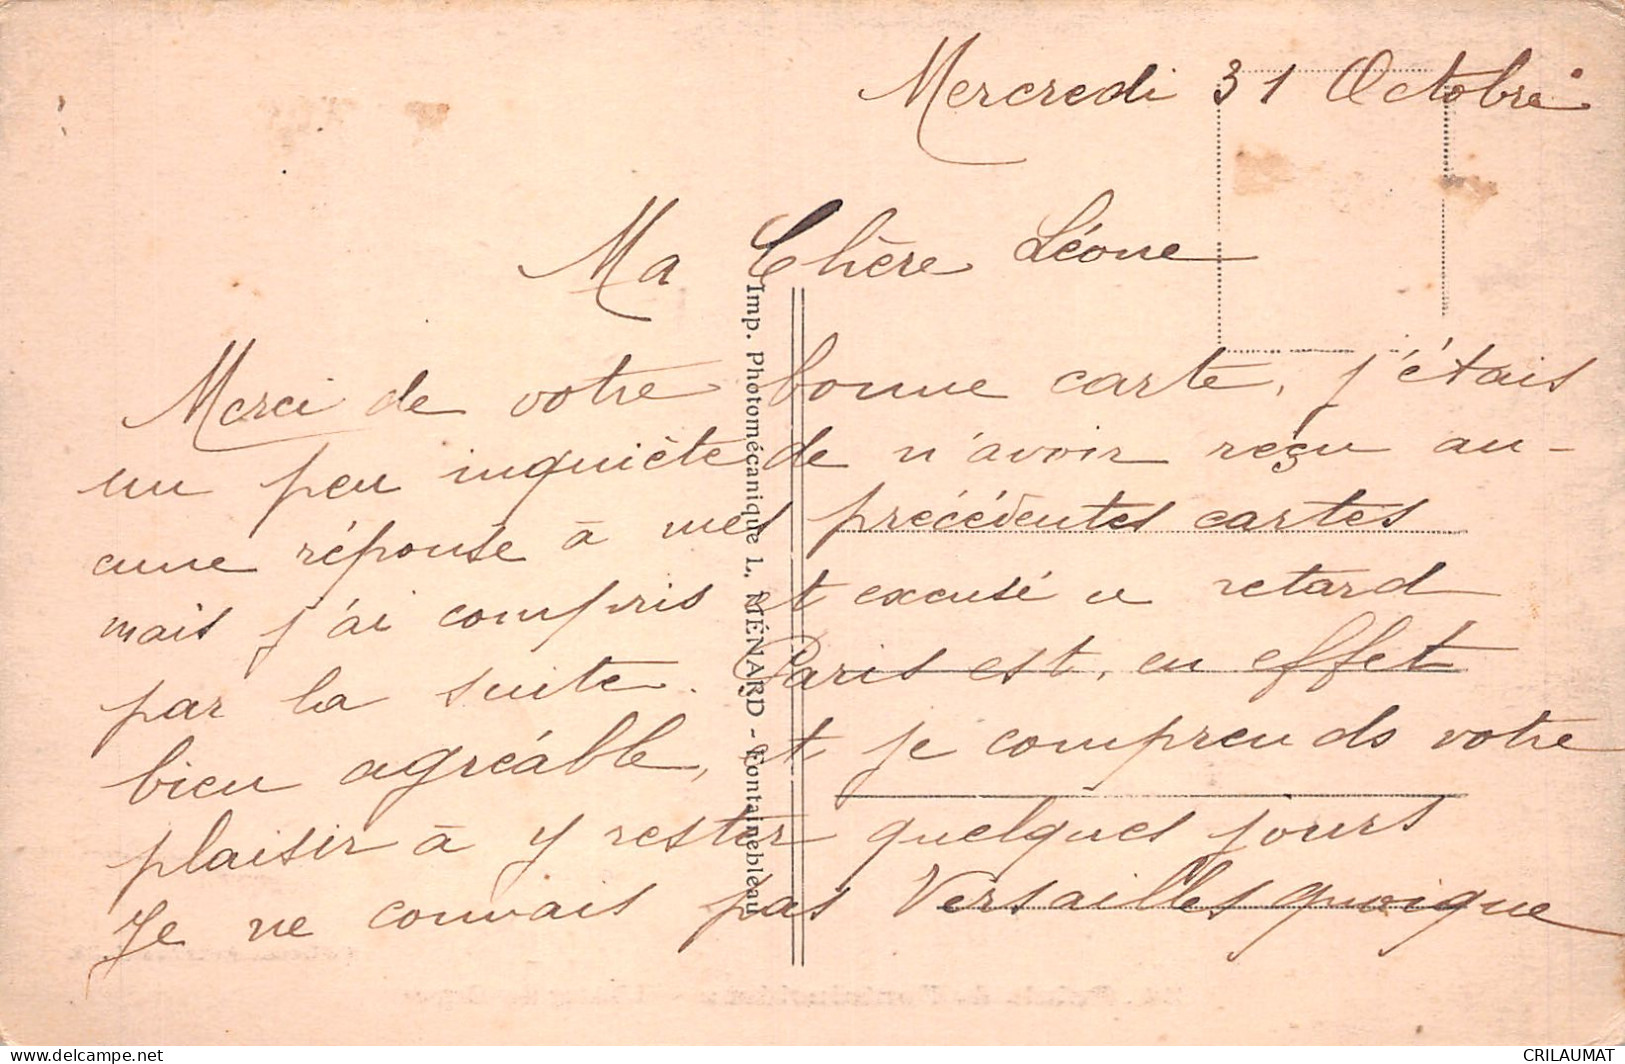 Mercredi 31 Octobre
Ma Chère Léone
Merci de votre bonne carte, j'étais
un peu inquiète de n'avoir reçu au-
cune réponse à mes précédentes cartes
mais j'ai compris et excusé ce retard
par la suite. Paris est, en effet
bien agréable, et je comprends votre
plaisir à y rester quelques jours
Je ne connais pas Versailles quoique
Imp. Photomécanique L. MÉNARD - Fontainebleau
CRILAUMAT